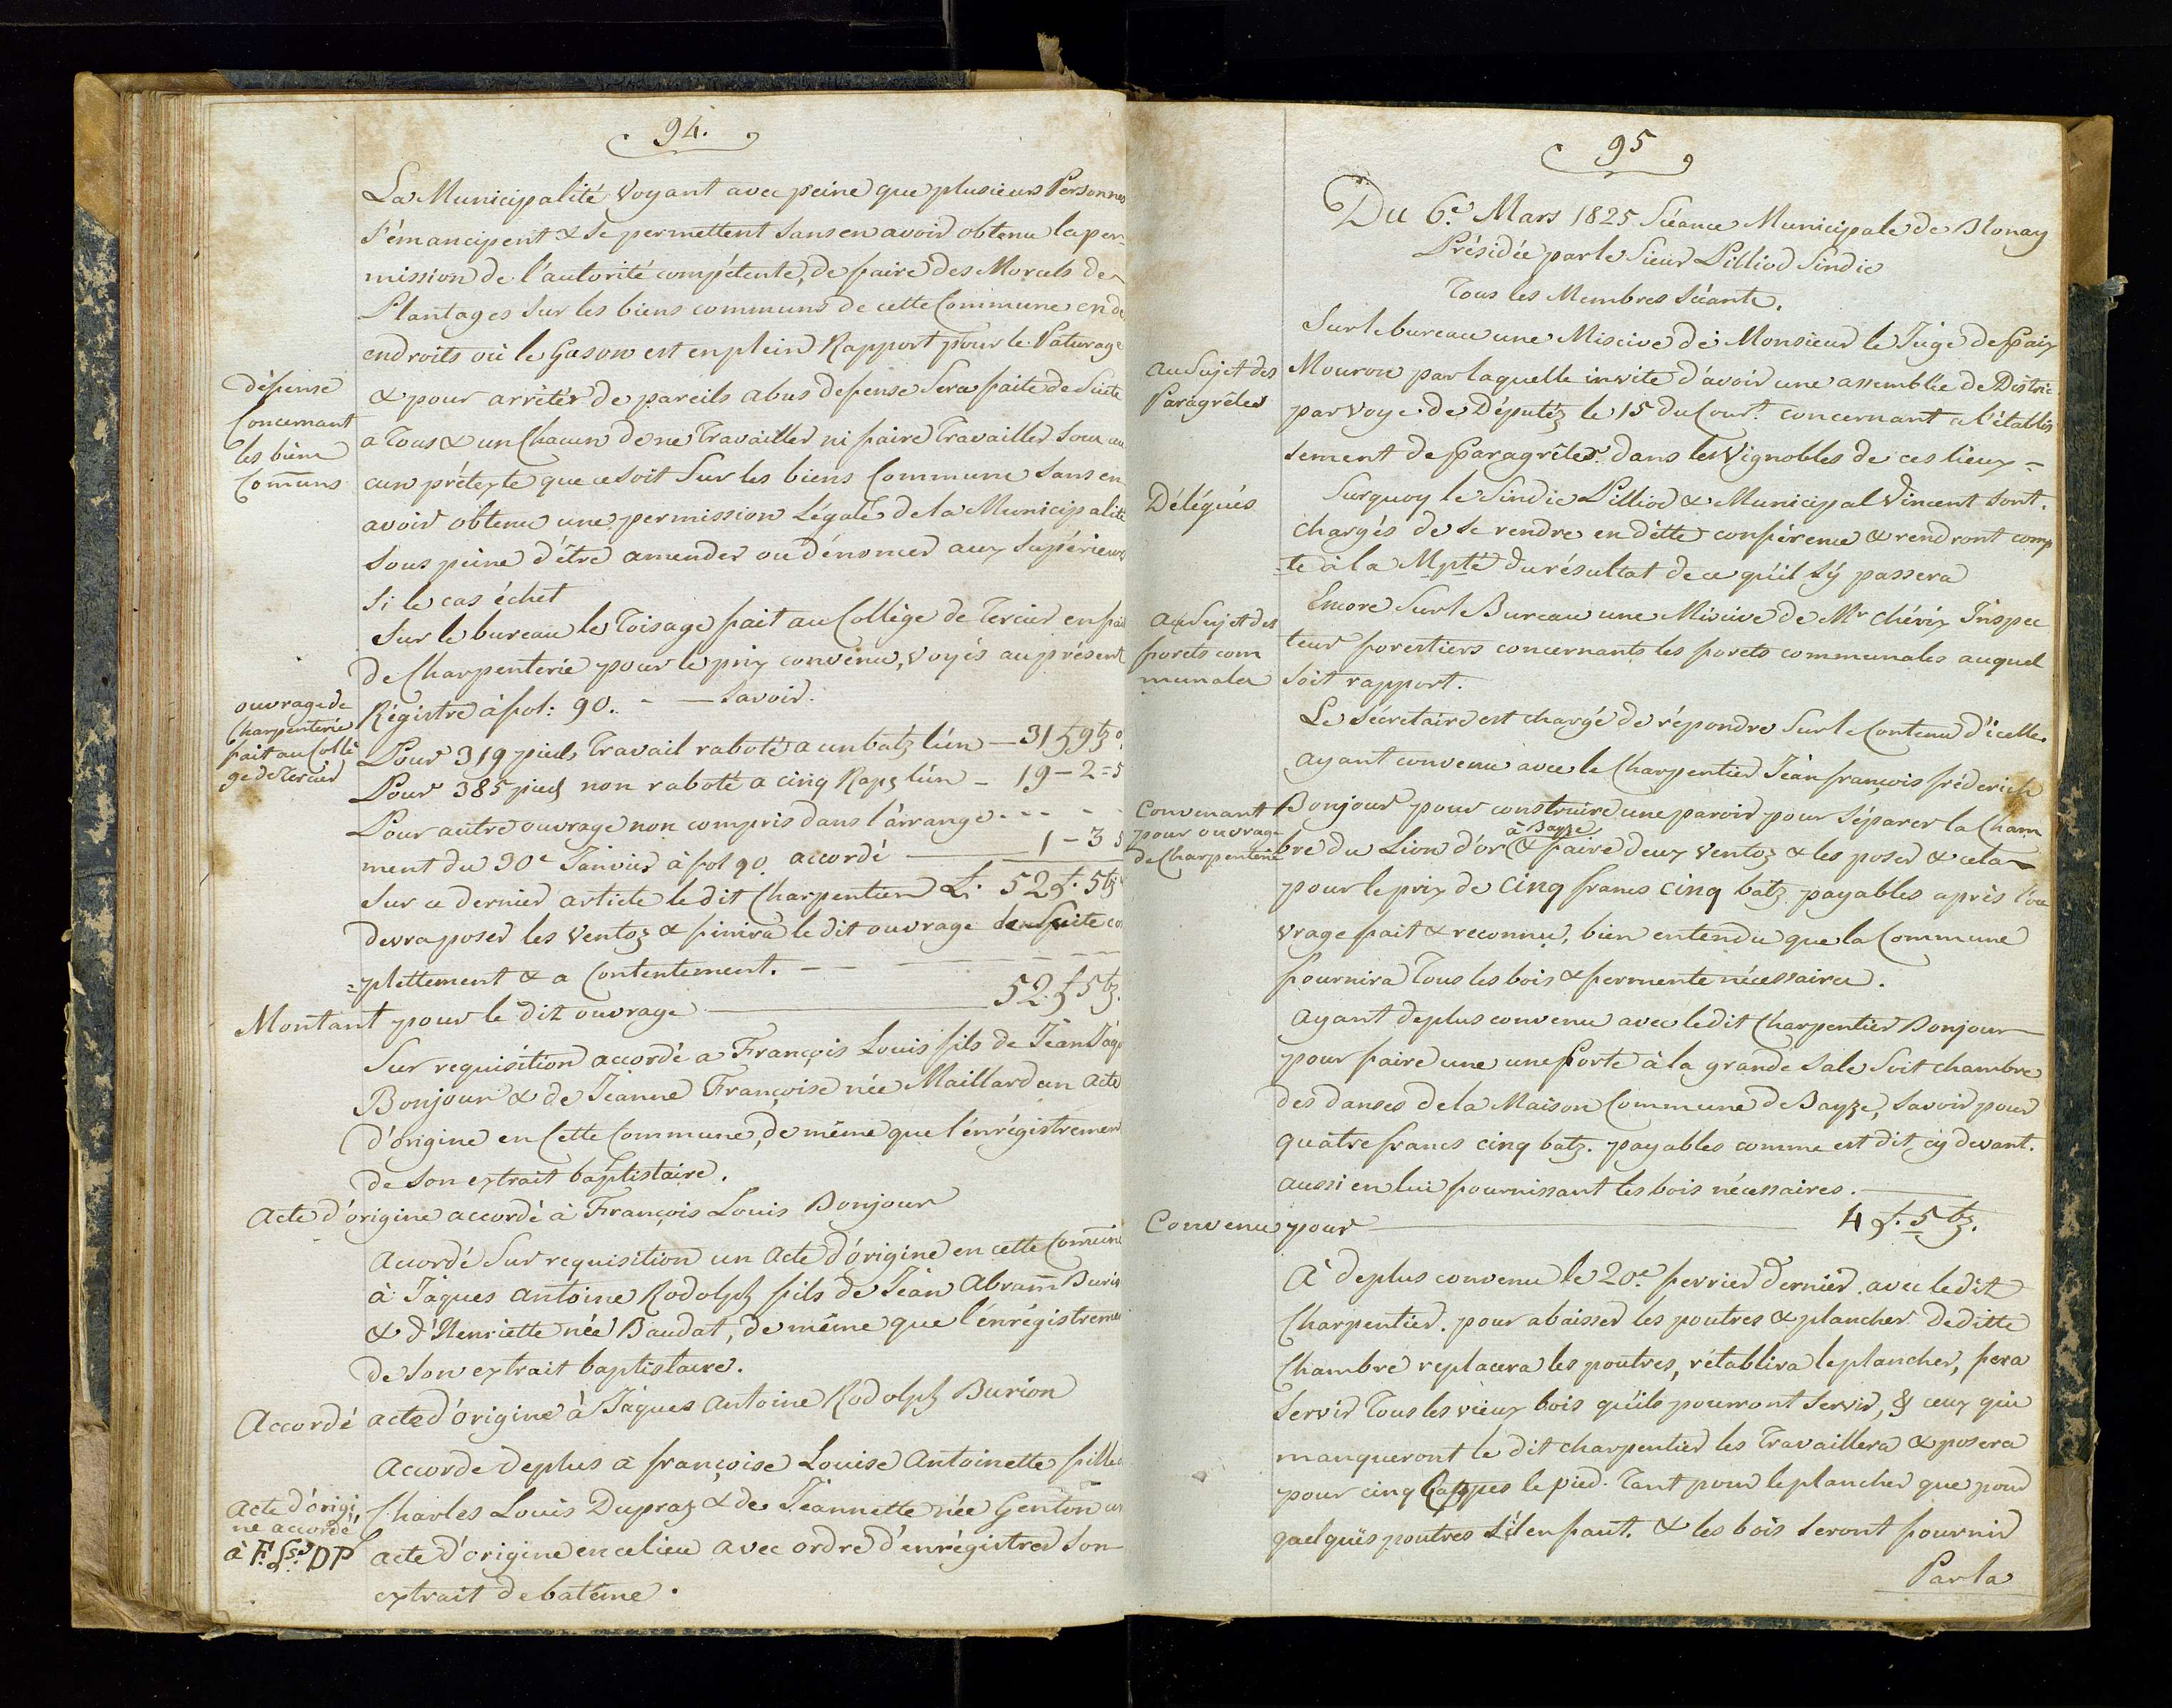 94.
La Municipalité Voyant avec peine que plusieurs Personnes
s'émancipent & se permettent sans en avoir obtenu la per-
mission de l'autorité compétente, de faire des Morcels de
Plantages sur les biens communs de cette Commune en de
endroits où le Gason est en plein Rapport pour le Paturage
défense
Concernant
les biens
Com̄uns
& pour arrêter de pareils abus defense sera faite de Suite
a Tous & un Chacun de ne Travailler ni faire Travailler sous au
cun prétexte que ce soit sur les biens Commune sans en
avoir obtenu une permission Légale de la Municipalité
sous peine d'être amender ou dénoncer aux Supérieurs
si le cas échet
Sur le bureau le Toisage fait au Collège de Tercier en fait
de Charpenterie pour le prix convenu, voyés au présent
ouvrage de
Charpenterie
fait au Collè
ge de Tercier
Régistre à fol: 90. - - Savoir.
Pour 319 pieds Travail raboté a un batz l'ún — 31 f 9 bz 0
Pour 385 pieds non raboté a cinq Rapz l'ún - 19 - 2 = 5
Pour autre ouvrage non compris dans l'arrange - - -
ment du 30e Janvier à fol 90. accordé — 1 - 3 5
Sur ce dernier article le dit Charpentier L. 52 f. 5 bz
devra poser les Ventoz & finira le dit ouvrage de suite com
=plettement & a Contentement. — —
Montant pour le dit ouvrage — 52 f 5 bz.
Sur requisition accordé a François Louis fils de Jean Jâq
Bonjour & de Jeanne Françoise née Maillard un acte
d'origine en Cette Commune, de même que l'énrégistremen
de son extrait baptistaire.
Acte d'origine accordé à François Louis Bonjour
Accordé sur requisition un acte d'origine en cette Com̄une
à Jâques Antoine Rodolph fils de Jean Abram Buri
& d'Henriette née Baudat, de même que l'énrégistremen
de son extrait baptistaire.
Accordé acte d'origine à Jâques Antoine Rodolph Burion
Accorde deplus a françoise Louise Antoinette fille
Acte d'origi
ne accordé
à F. Lse DP
Charles Louis Dupraz & de Jeannette née Genton un
acte d'origine en ce lieu avec ordre d'énrégistrer son
extrait de batême.
95
Du 6e. Mars 1825 Séance Municipale de Blonay
Présidée par le Sieur Pilliod Sindic
Tous les Membres Séants.
Sur le bureau une Miscive de Monsieur le Juge de Paix
Au Sujet des
Paragrêles
Mouron par laquelle invite d'avoir une assemblée de Distric
par Voye de Députéz le 15 du Court. concernant a l'établis
sement de Paragrêles dans les Vignobles de ces lieux =
Délégués
Surquoy le Sindic Pilliod & Municipal Vincent sont
chargés de se rendre en ditte conférence & rendront comp
=te à la Mpté du résultat de ce qu'il s'y passera
Encore sur le Bureau une Miscive de Mr Chérix Inspec
Au Sujet des
forets com
munales
teur forestiers concernants les forets communales auquel
soit rapport.
Le Sécretaire est chargé de répondre sur le Contenu d'icelle.
Ayant convenu avec le Charpentier Jean françois fréderich
Convenant
pour ouvrage
de Charpenterie
Bonjour pour construire une paroir pour séparer la Cham
à Bayze
bre du Lion d'or & faire deux Ventoz & les poser & cela
pour le prix de Cinq francs Cinq batz payables après l'ou
vrage fait & reconnu, bien entendu que la Commune
fournira Tous les bois & fermente nécessaires.
Ayant deplus convenu avec le dit Charpentier Bonjour
pour faire une une Porte à la grande Sale soit chambre
des danses de la Maison Commune de Bayze, Savoir pour
quatre francs cinq batz. payables comme est dit cy devant.
aussi en lui fournissant les bois nécessaires.
Convenu pour — 4 f. 5 bz.
À deplus convenu le 20e. fevrier dernier avec le dit
Charpentier. pour abaisser les poutres & plancher de ditte
Chambre replacera les poutres, rétablira le plancher, fera
Servir Tous les vieux bois qu'ils pourront Servir, & ceux qui
manqueront le dit charpentier les Travaillera & posera
pour cinq Rappes le pied. Tant pour le plancher que pour
quelques poutres s'il en faut. & les bois seront fournir
Par la